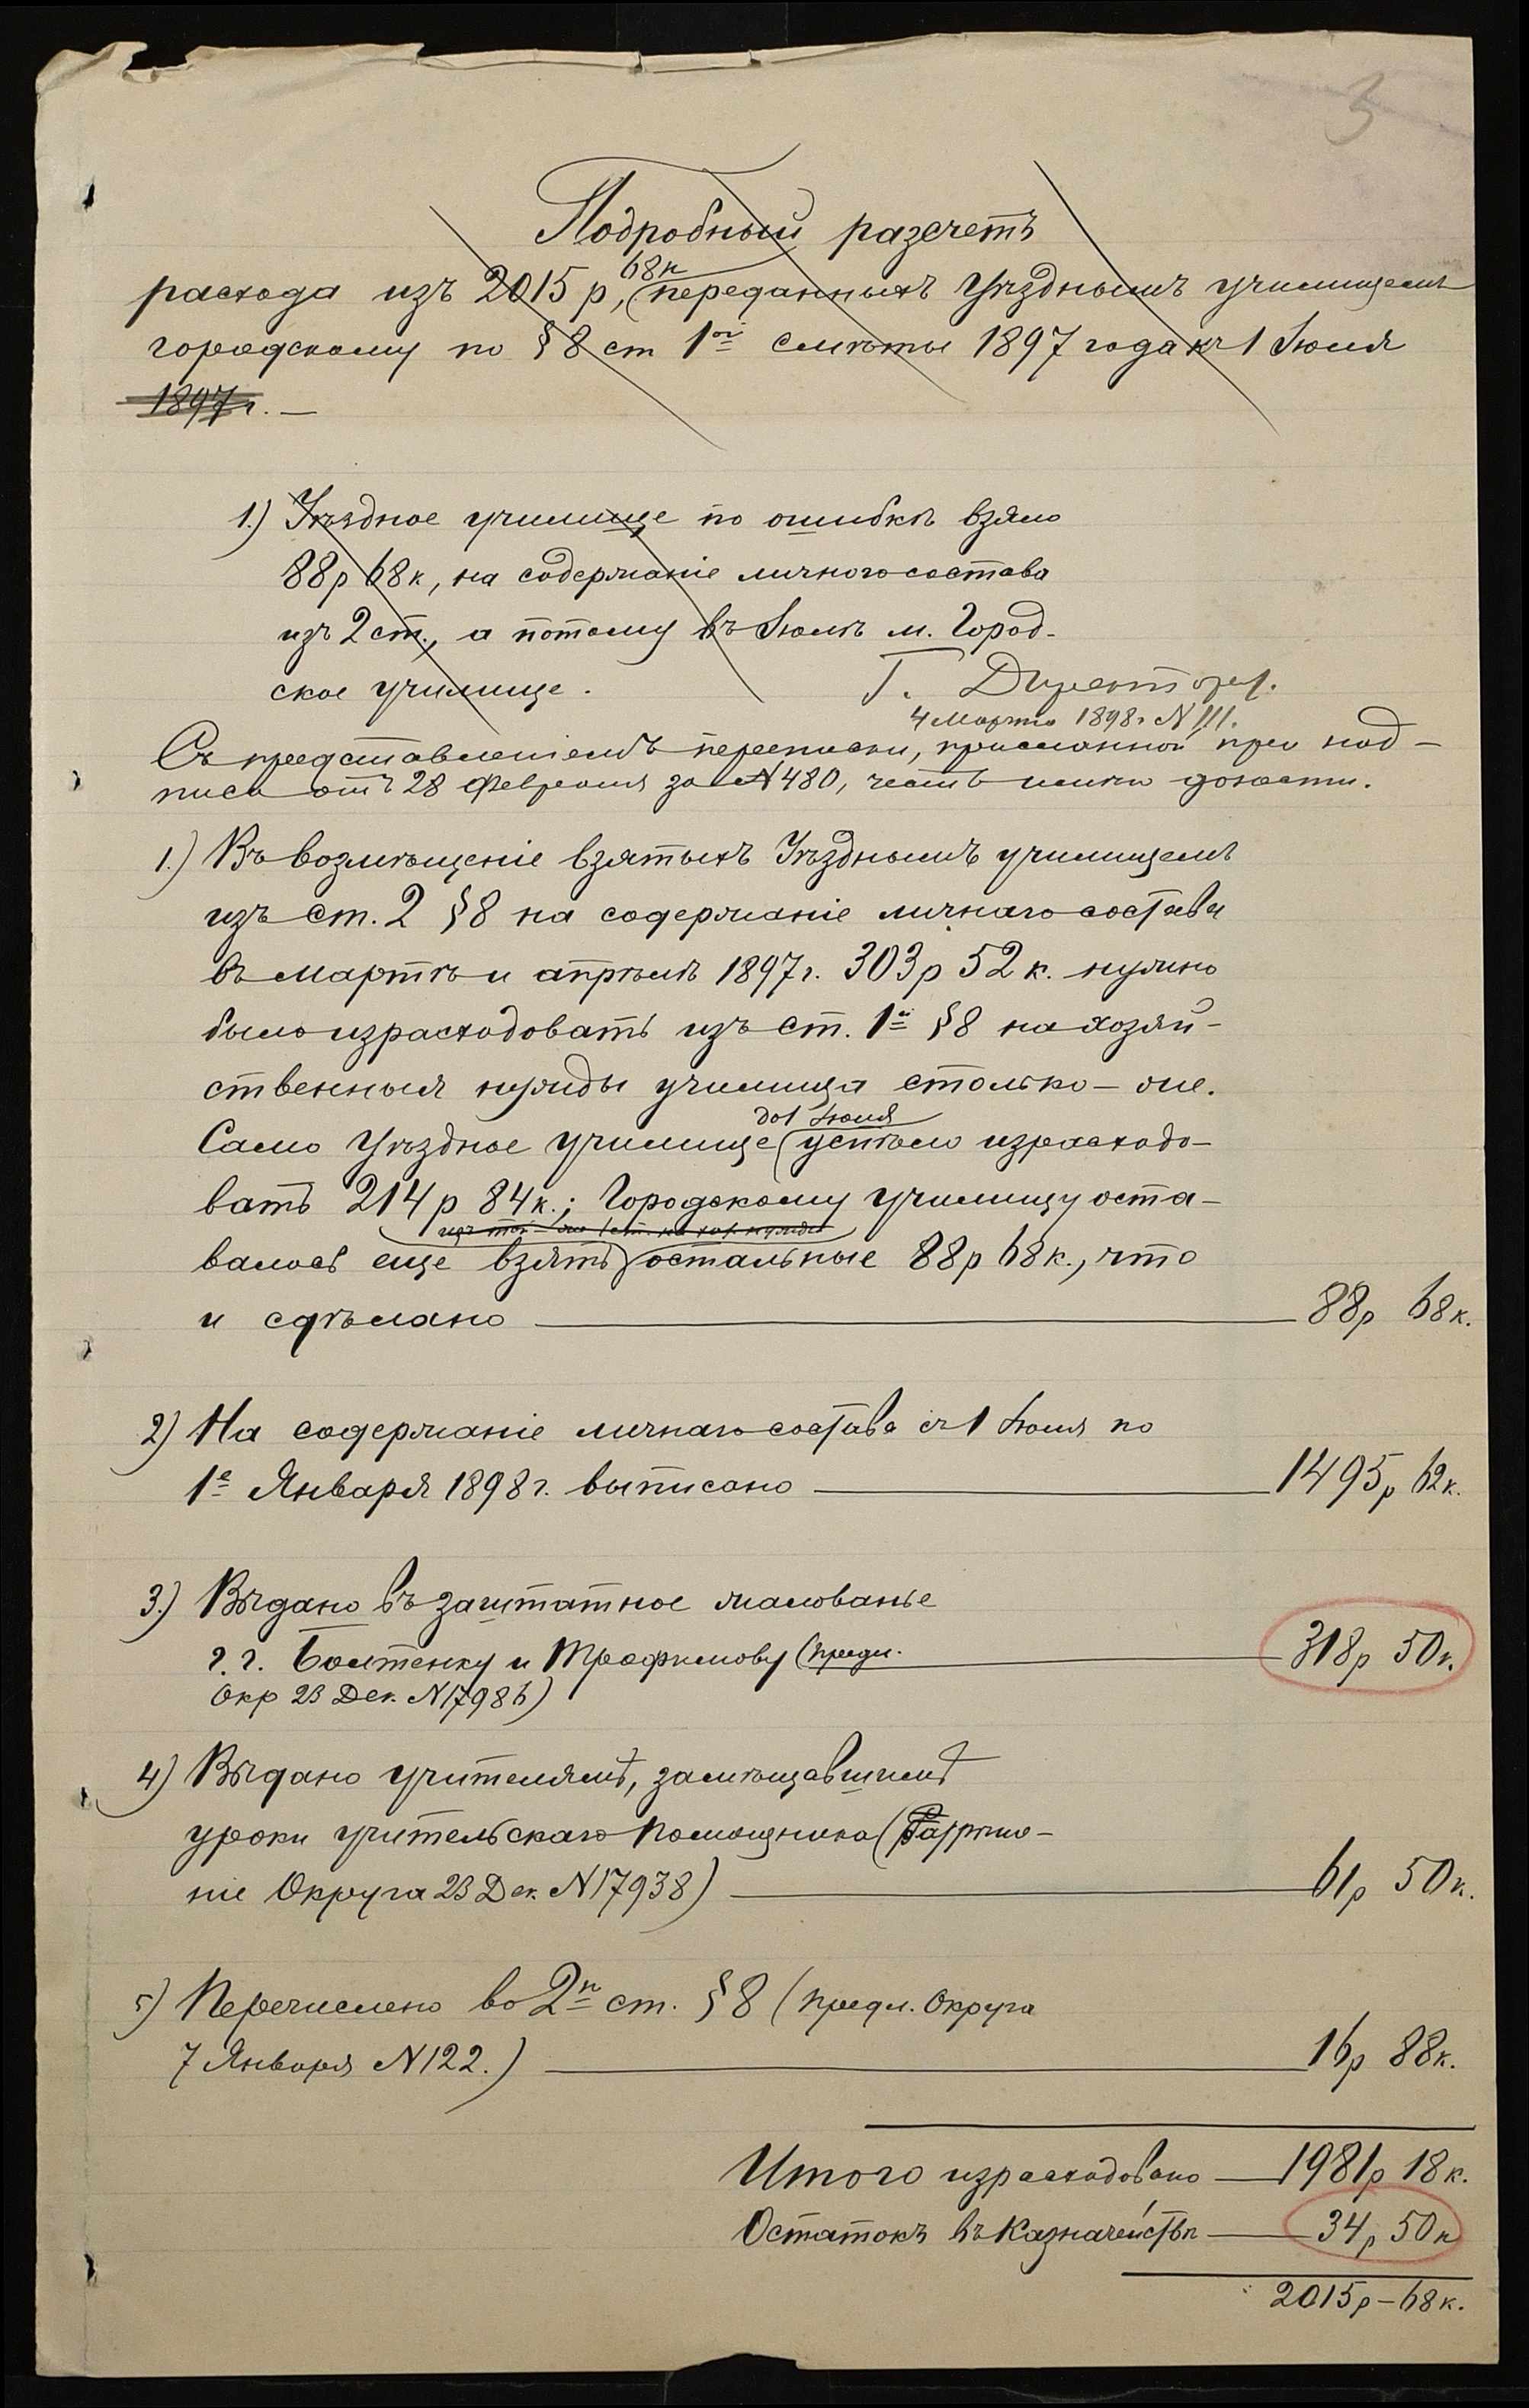 3
Подробный разсчетъ
68к
расхода изъ 2015 р, переданныхъ Уѣзднымъ училищемъ
городскому по § 8 ст 1ой смѣты 1897 года къ 1 Іюля
1897 г. —
1.) Уѣздное училище по ошибкѣ взяло
88 р 68 к, на содержаніе личного состава
изъ 2 ст., а потому въ Іюлѣ м. Город-
ское училище.
Г. Директору.
4 Марта 1898 г N 111.
Съ представленіемъ переписки, присланной при над-
писи отъ 28 Февраля за N 480, честь имѣю донести.
1.) Въ возмѣщеніе взятыхъ Уѣзднымъ училищемъ
изъ ст. 2 § 8 на содержаніе личнаго состава
въ мартѣ и апрѣлѣ 1897 г. 303 р 52 к. нужно
было израсходовать изъ ст. 1й § 8 на хозяй-
ственныя нужды училища столько-же.
до 1 Іюля
Само Уѣздное училище успѣло израсходо-
вать 214 р 84 к.; Городскому училищу оста-
изъ той-же 1 ст. на хоз. нужды
валось еще взять остальные 88 р 68 к., что
и сдѣлано — 88 р 68 к.
2) На содержаніе личнаго состава съ 1 Іюля по
1е Января 1898 г. выписано — 1495 р 62 к.
3.) Выдано въ заштатное жалованье
г.г. Болтенку и Трофимову (предл. — 318 р 50 к.
Окр 23 Дек. N 17986)
4) Выдано учителямъ, замѣщавшимъ
уроки учительскаго помощника (Разрѣше-
ніе Округа 23 Дек. N 17938) — 61 р 50 к.
5) Перечислено во 2ю ст. § 8 (предл. Округа
7 Января N 122.) — 16 р 88 к.
Итого израсходовано — 1981 р 18 к.
Остатокъ въ Казначействѣ — 34 р 50 к
2015 р - 68 к.